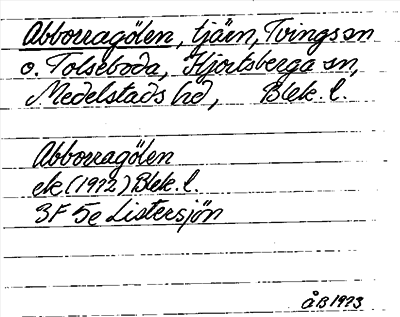 Abborragölen, tjärn, Tvings sn
o. Tolseboda, Hjortsberga sn,
Medelstads hd, Blek. l.
Abborragölen
ek (1972) Blek. l.
3F 5e Listersjön
åB 1973